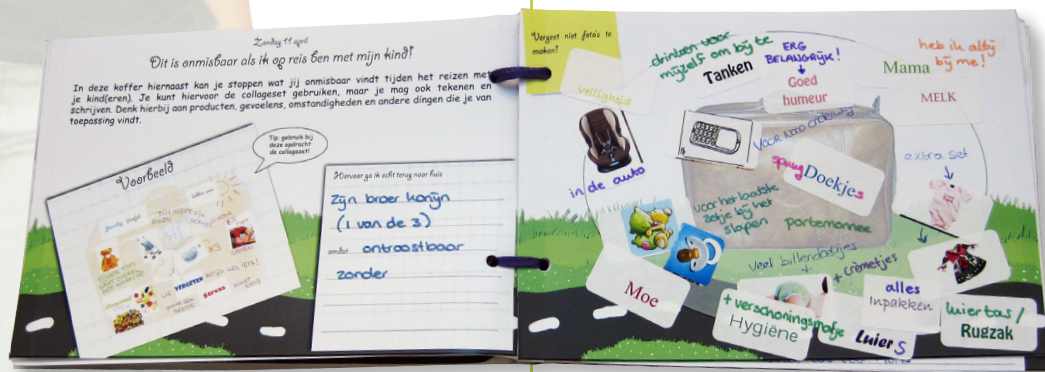 Zondag 11 april
Dit is onmisbaar als ik op reis ben met mijn kind!
In deze koffer hiernaast kan je stoppen wat jij onmisbaar vindt tijden het reizen met
je kind(eren). Je kunt hiervoor de collageset gebruiken, maar je mag ook tekenen en
schrijven. Denk hierbij aan producten, gevoelens, omstandigheden en andere dingen die je van
toepassing vindt.
Tip: gebruik bij
deze opdracht
de collageset!
Voorbeeld
VERGETEN
Hiervoor ga ik echt terug naar huis
zijn broer konijn
(1 van de 3)
omdat ontroostbaar
zonder
Vergeet niet foto's te
maken!
drinken voor
mijzelf om bij te
Tanken
ERG
BELANGRIJK!
Goed
humeur
heb ik altijd
bij me!
Mama
MELK
Veiligheid
in de auto
voor nood onderweg
spuugDoekjes
extra set
voor het laatste
zetje bij het
slapen
portemonnee
veel billendoekjes
+ crèmetjes
Moe
+ verschoningsmatje
Hygiëne
alles
inpakken
Luiers
luiertas/
Rugzak